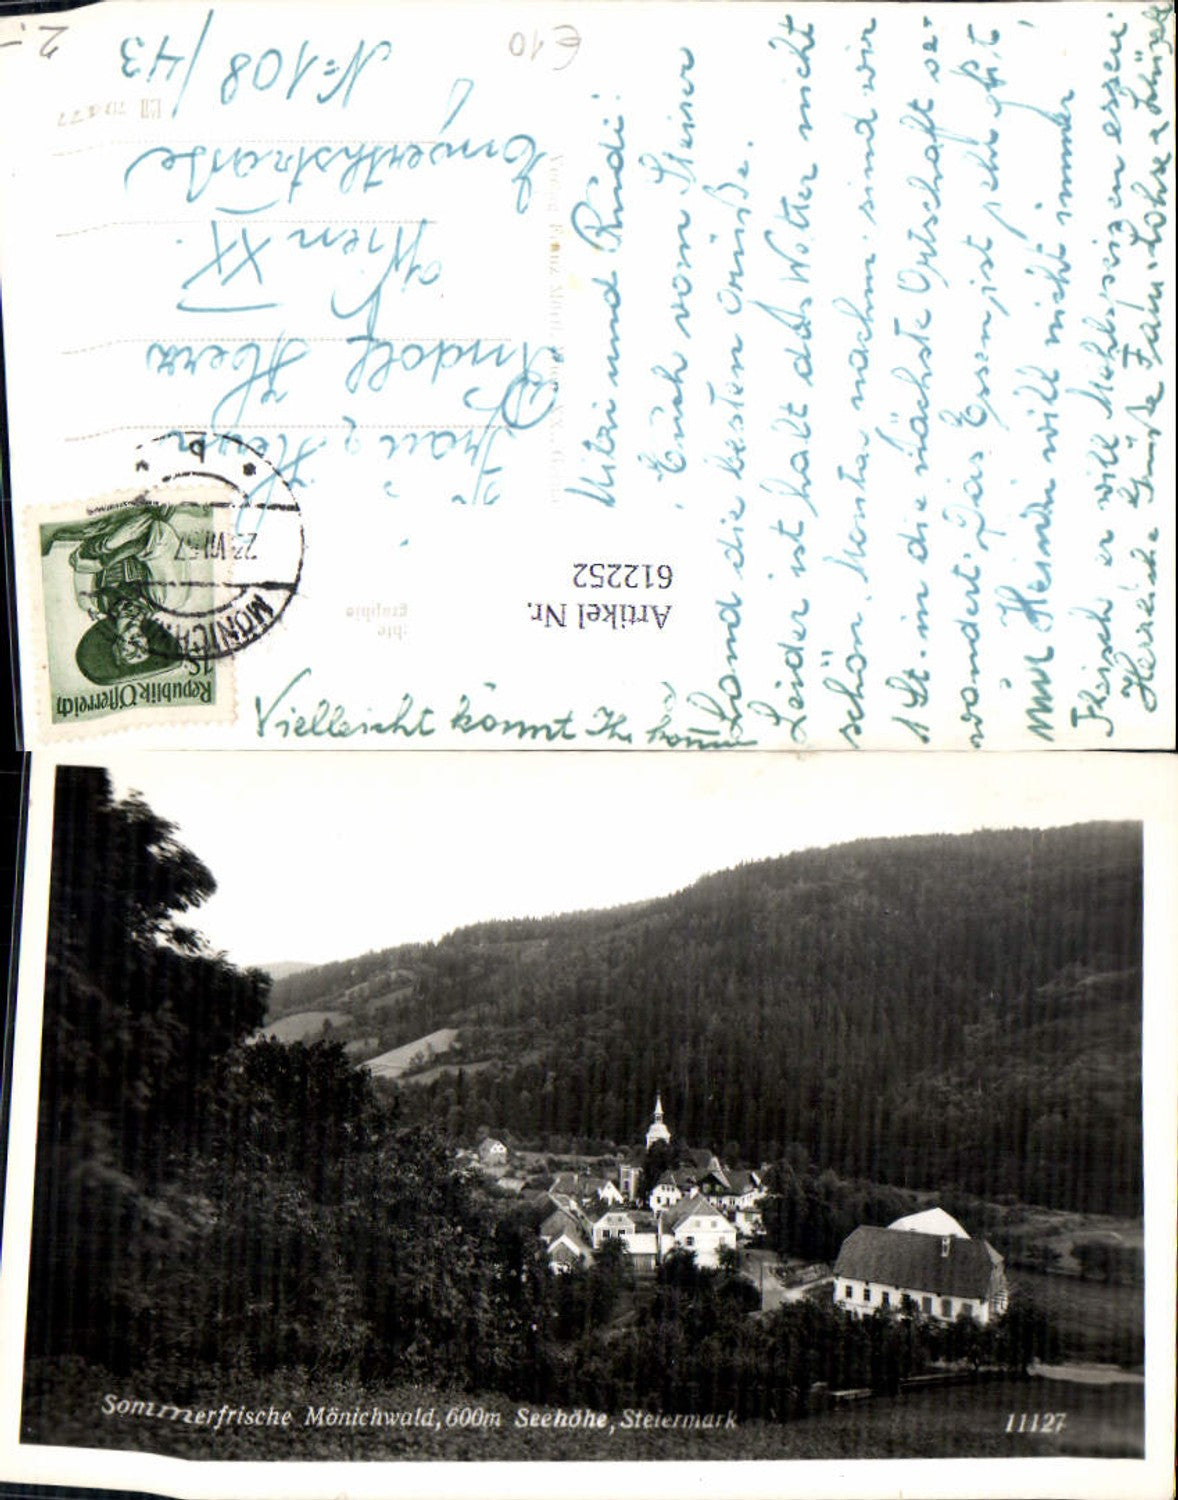 2.-
€10
Nº 108/43
Wien XX.
Rudolf
Frau
Mitzi und Rudi!
Euch vom Steirer
Land die besten Grüße.
Leider ist halt das Wetter nicht
schön. Montag nachm. sind wir
1 St. in die nächste Ortschaft ge-
wandert. Das Essen ist sehr gut
nur Heindi will nicht immer
Fleisch er will Mehlspeisen essen
Herzliche Grüße Fam.
Vielleicht könnt Ihr kommen
Artikel Nr.
612252
Republik Österreich
1S
23.VII.57
MÖNICH
b
Sommerfrische Mönichwald, 600m Seehöhe, Steiermark
11127